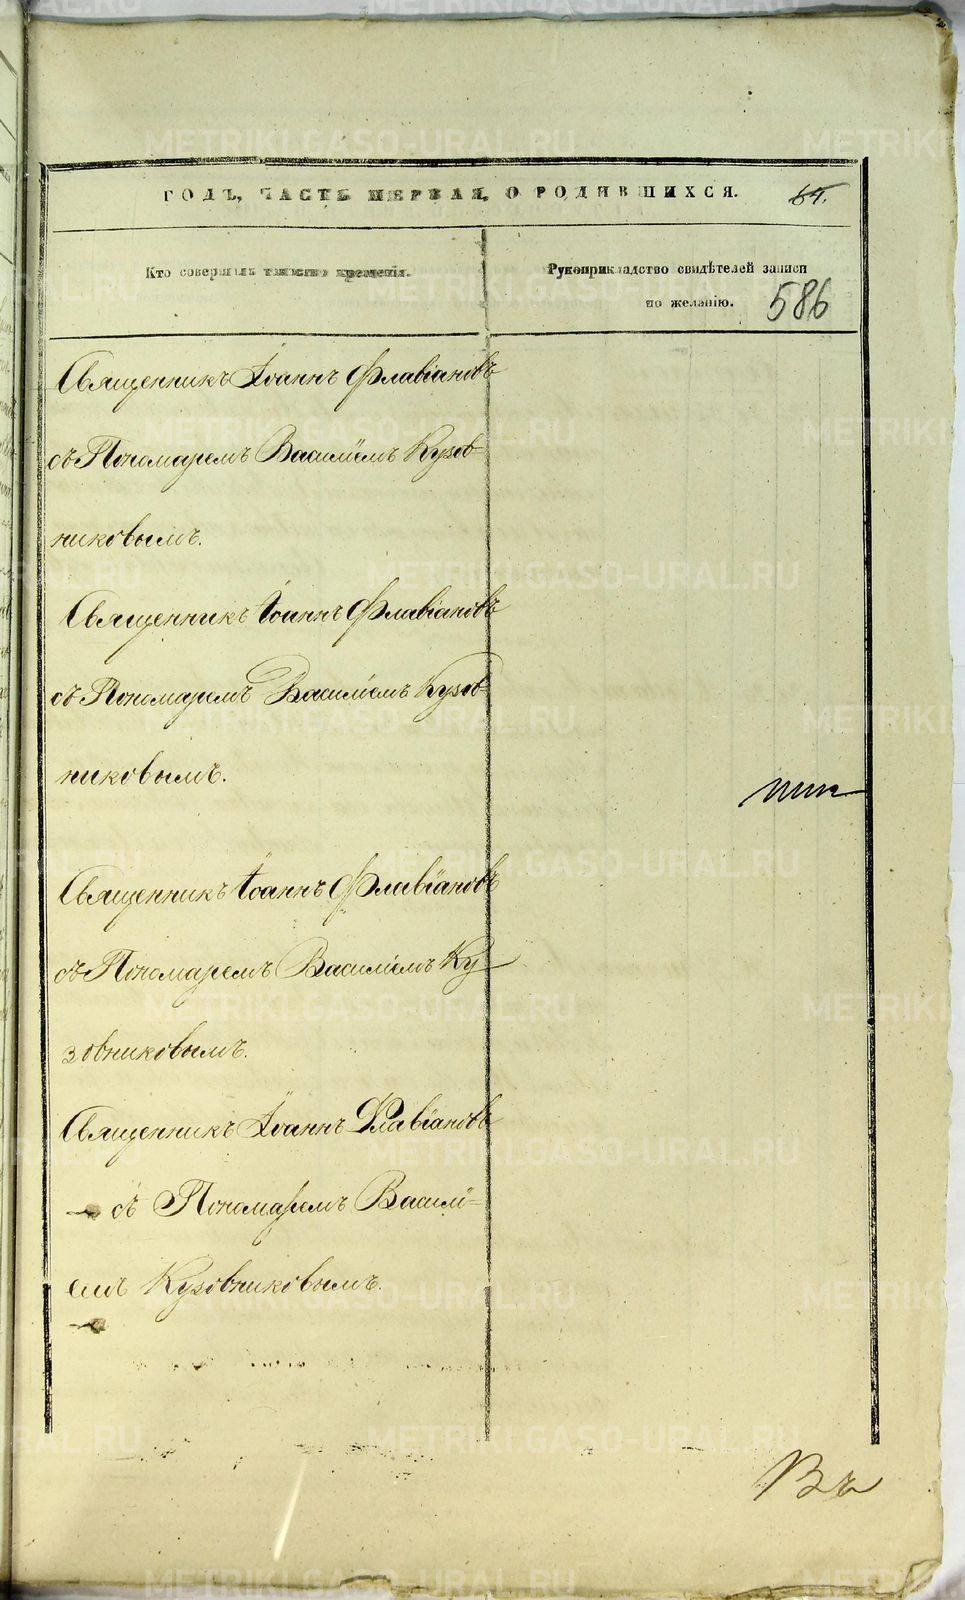 ГОДЪ, ЧАСТЬ ПЕРВАЯ, О РОДИВШИХСЯ.
Кто совершалъ таинство крещенія.
Рукоприкладство свидѣтелей записи
по желанію.
586
Священникъ Іоаннъ Флавіановъ
съ Пономаремъ Василіемъ Кузов-
никовымъ.
Священникъ Іоаннъ Флавіановъ
съ Пономаремъ Василіемъ Кузов-
никовымъ.
Священникъ Іоаннъ Флавіановъ
съ Пономаремъ Василіемъ Ку
зовниковымъ.
Священникъ Іоаннъ Флавіановъ
съ Пономаремъ Василі=
емъ Кузовниковымъ.
Въ
METRIKI.GASO-URAL.RU